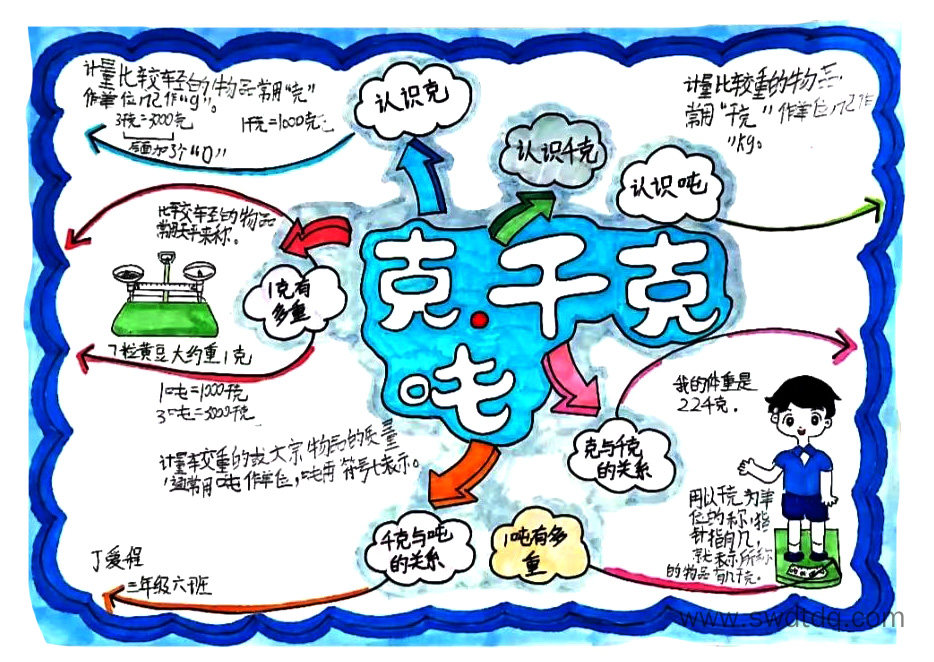 计量比较轻的物品常用“克”
作单位记作“g”。
3千克=3000克 1千克=1000克
后面加3个“0”
认识克
认识千克
认识吨
计量比较重的物品
常用“千克”作单位记作
“kg。
比较轻的物品
常用天平来称。
1克有
多重
7粒黄豆大约重1克
克·千克
吨
1吨=1000千克
3吨=3000千克
计量较重的或大宗物品的质量
通常用吨作单位,吨用符号t表示。
我的体重是
22千克.
克与千克
的关系
用以千克为单
位的称,指
针指几,
就表示所称
的物品有几千克。
千克与吨
的关系
1吨有多
重
丁爱程
三年级六班
www.swdtdq.com